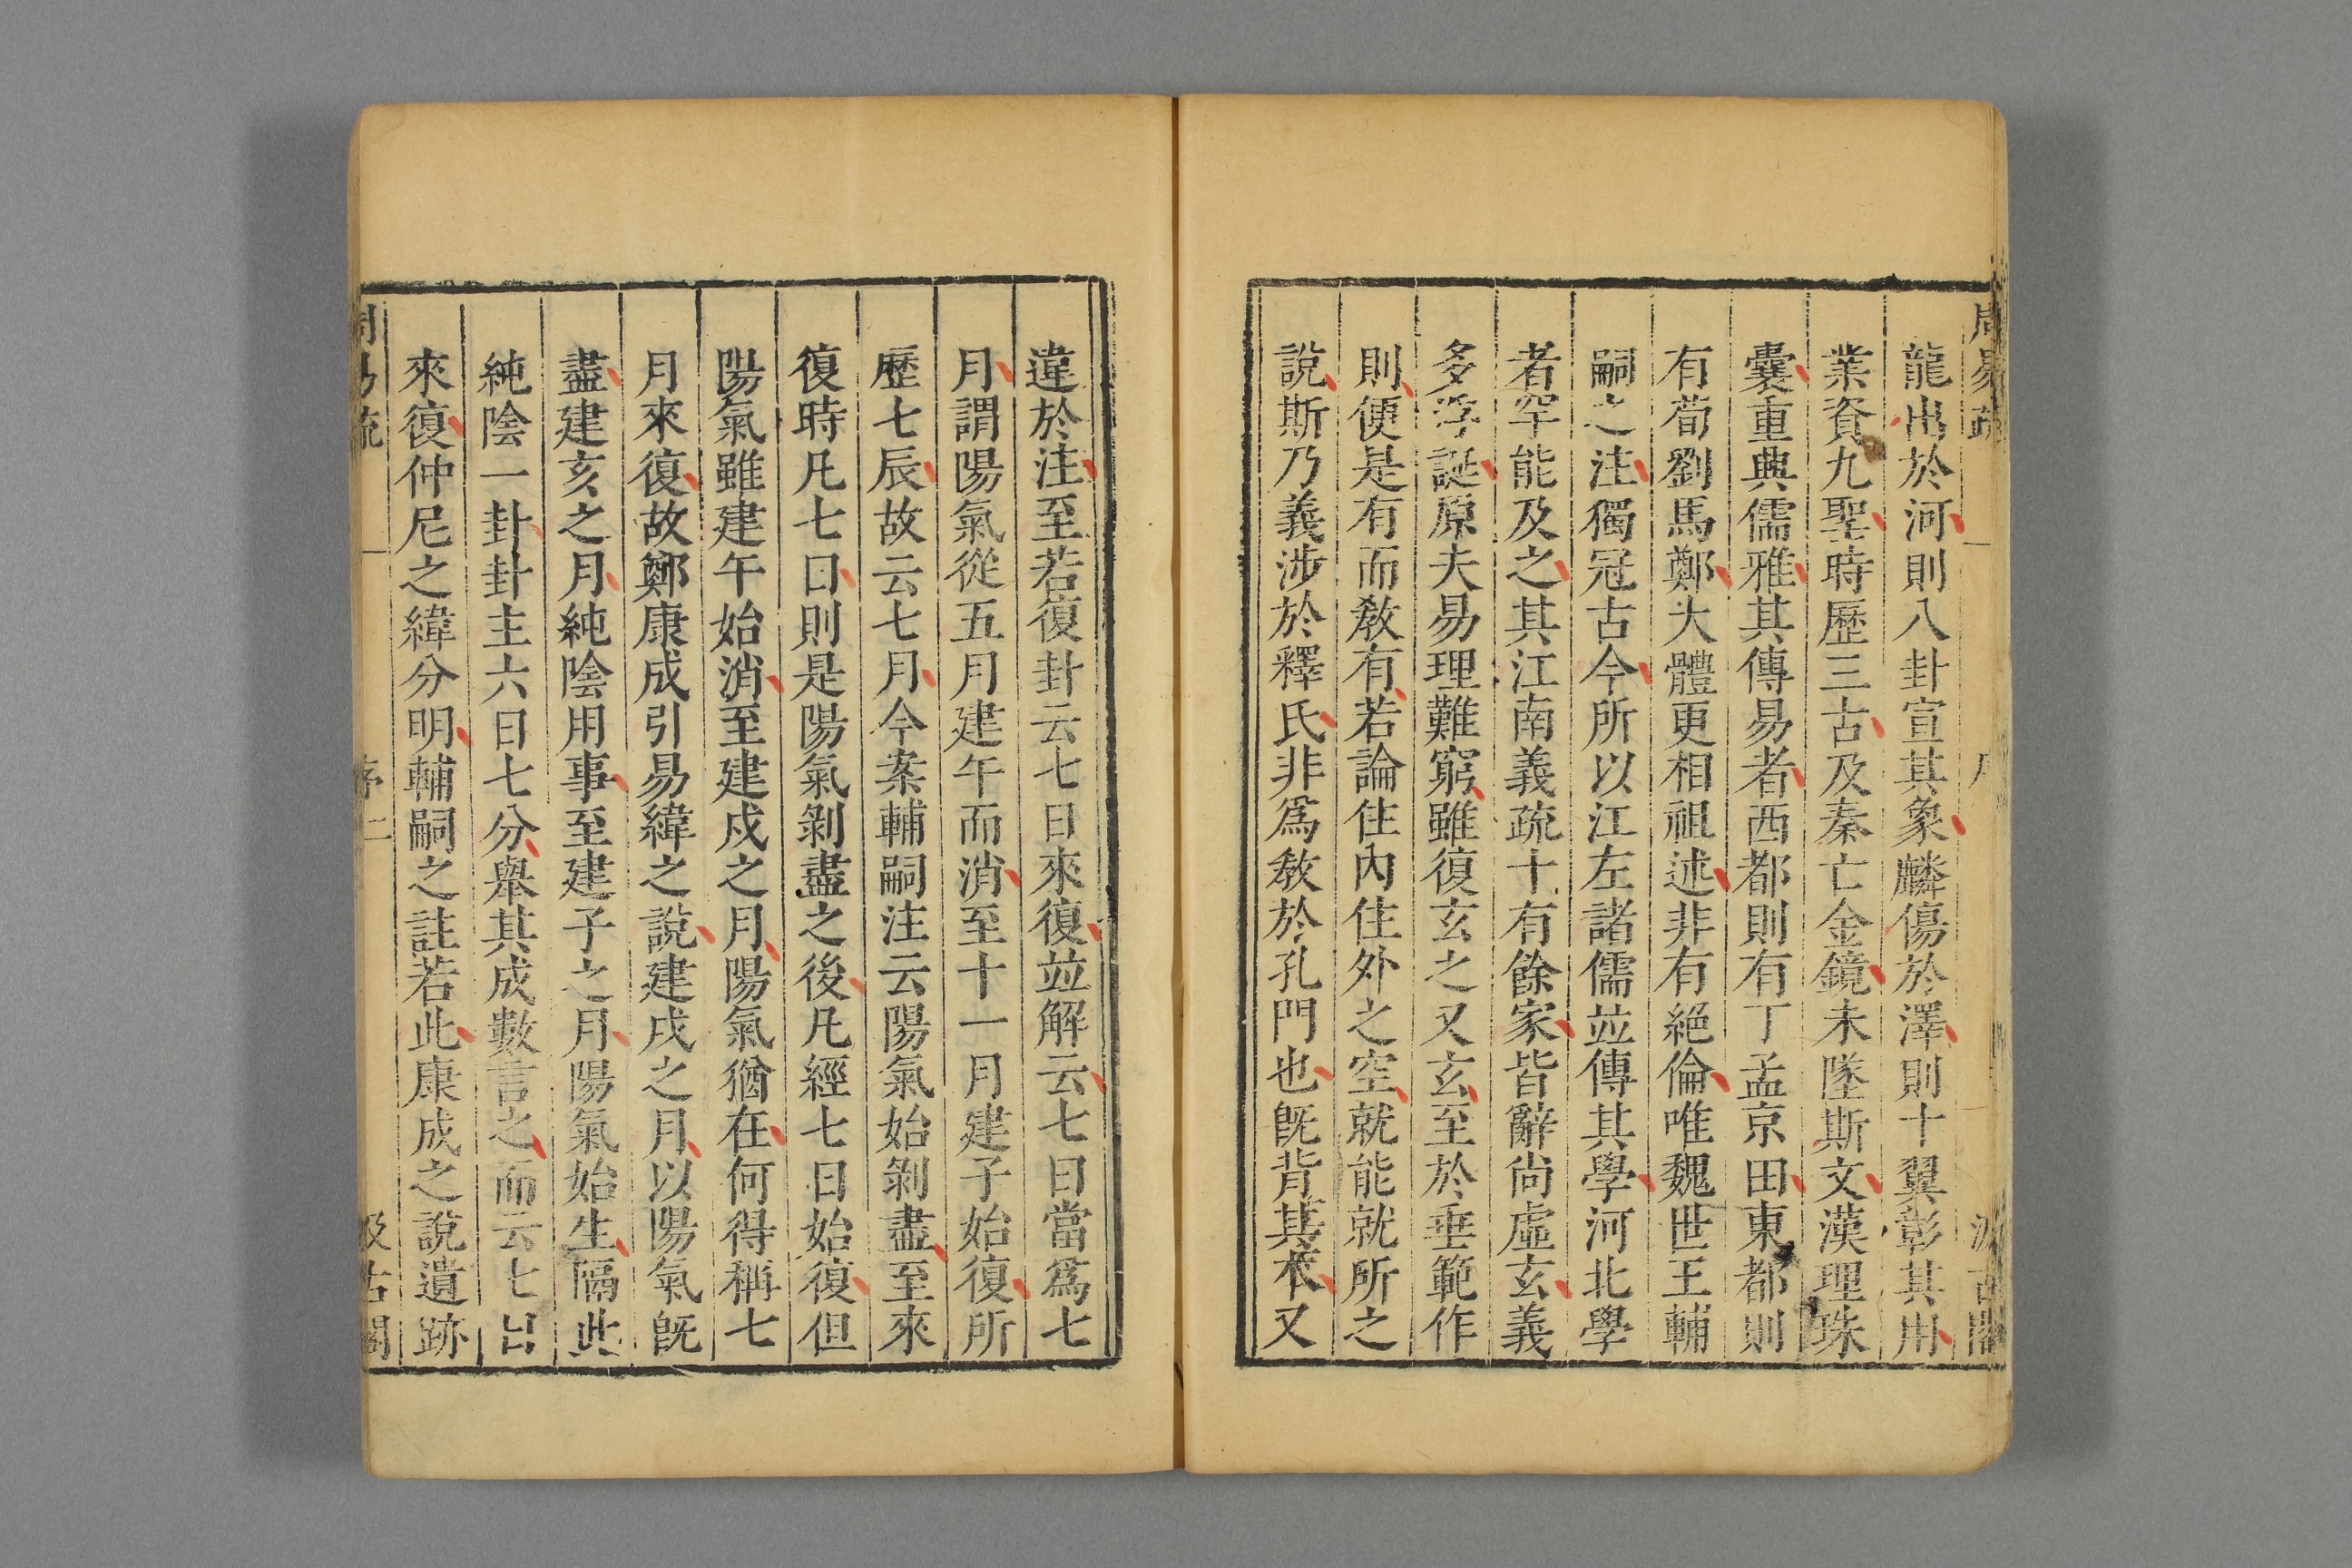 周易疏
汲古閣
龍出於河則八卦宣其象麟傷於澤則十翼彰其用
業資九聖時歷三古及秦亡金鏡未墜斯文漢理珠
囊重典儒雅其傳易者西都則有丁孟京田東都則
有荀劉馬鄭大體更相祖述非有絕倫唯魏世王輔
嗣之注獨冠古今所以江左諸儒並傳其學河北學
者罕能及之其江南義疏十有餘家皆辭尚虛玄義
多浮誕原夫易理難窮雖復玄之又玄至於垂範作
則便是有而教有若論住內住外之空就能就所之
說斯乃義涉於釋氏非爲教於孔門也旣背其本又
違於注至若復卦云七日來復並解云七日當爲七
月謂陽氣從五月建午而消至十一月建子始復所
歷七辰故云七月今案輔嗣注云陽氣始剝盡至來
復時凡七日則是陽氣剝盡之後凡經七日始復但
陽氣雖建午始消至建戍之月陽氣猶在何得稱七
月來復故鄭康成引易緯之說建戌之月以陽氣旣
盡建亥之月純陰用事至建子之月陽氣始生隔此
純陰一卦卦主六日七分舉其成數言之而云七日
來復仲尼之緯分明輔嗣之註若此康成之說遺跡
周易疏
序二
汲古閣